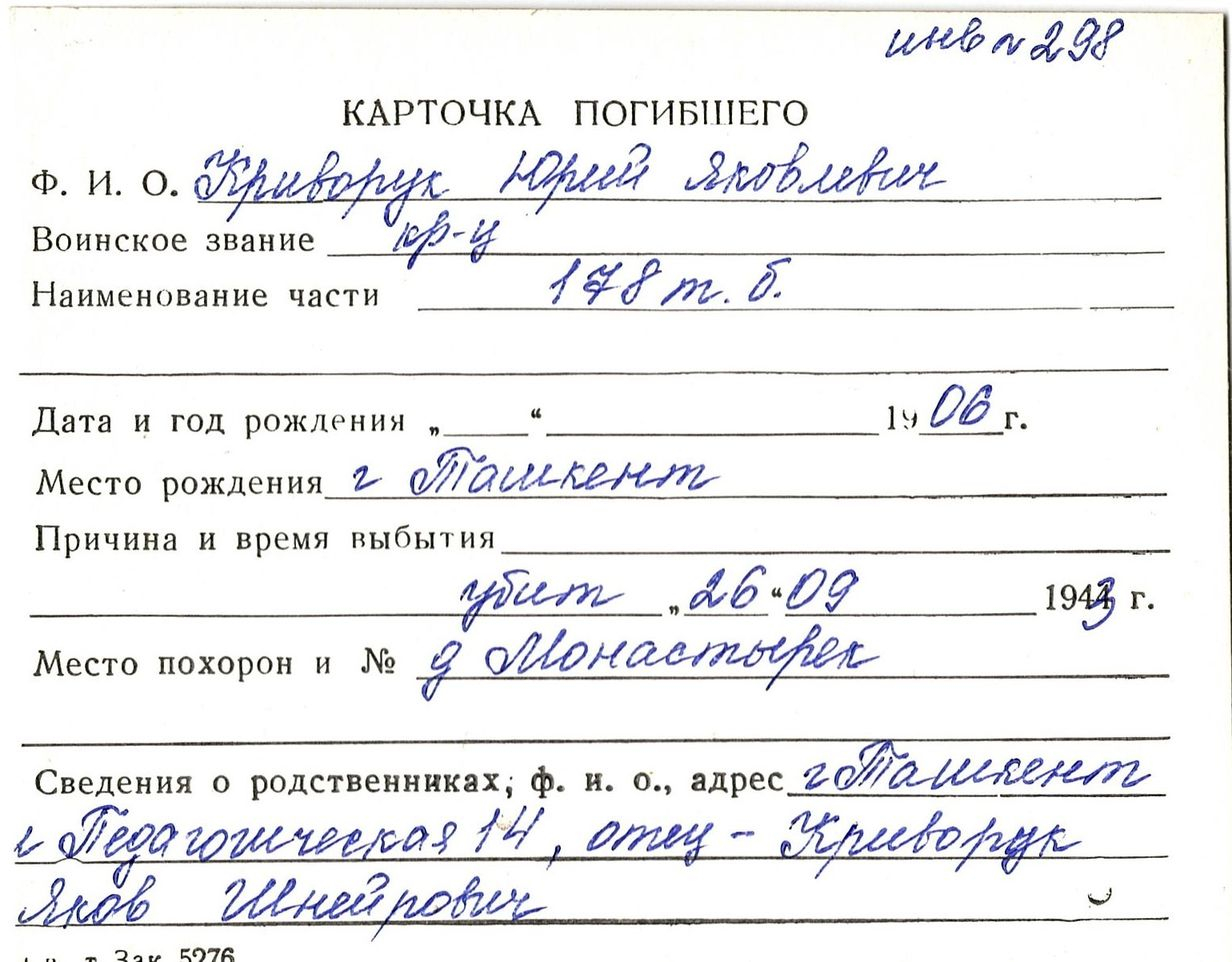 инв № 298
КАРТОЧКА ПОГИБШЕГО
Ф. И. О. Криворук Юрий Яковлевич
Воинское звание кр-ц
Наименование части 178 т. б.
Дата и год рождения „ “ 1906 г.
Место рождения г Ташкент
Причина и время выбытия
убит „26“ 09 1943 г.
Место похорон и № д Монастырек
Сведения о родственниках, ф. и. о., адрес г Ташкент
Педагогическая 14, отец - Криворук
Яков Шнейрович
т. Зак. 5276